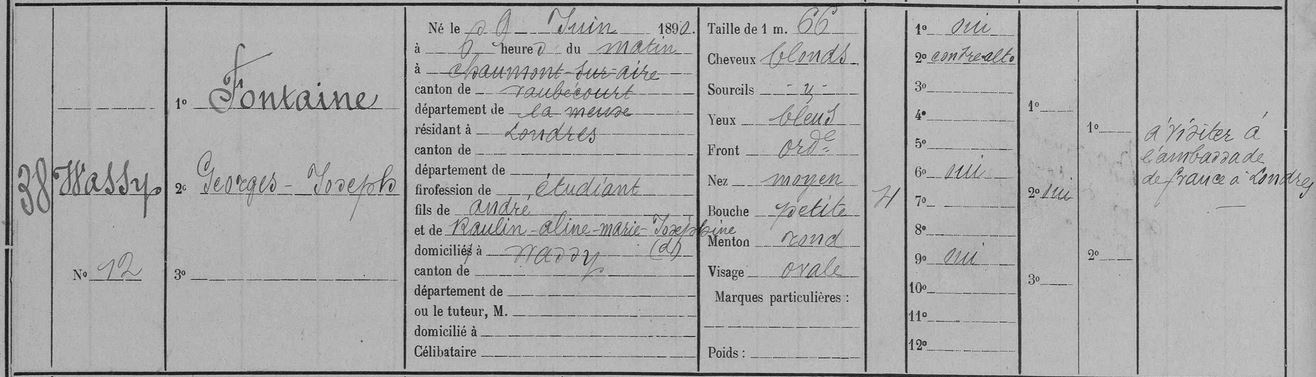 38
Wassy
Nº 12
1º Fontaine
2º Georges - Joseph
3º
Né le 29 Juin 1890.
à 6 heures du matin
à Chaumont-sur-aire
canton de Vaubécourt
département de la meuse
résidant à Londres
canton de
département de
profession de étudiant
fils de andré
et de Raulin-aline-marie-Joséphine
domiciliés à Wassy (d)
canton de
département de
ou le tuteur, M.
domicilié à
Célibataire
Taille de 1 m. 66
Cheveux blonds
Sourcils -y-
Yeux bleus
Front ordre
Nez moyen
Bouche petite
Menton rond
Visage ovale
Marques particulières :
Poids :
4
1º oui
2º contre-alto
3º
4º
5º
6º oui
7º
8º
9º oui
10º
11º
12º
1º
2º oui
3º
1º
2º
à visiter à
l'ambassade
de france à Londres